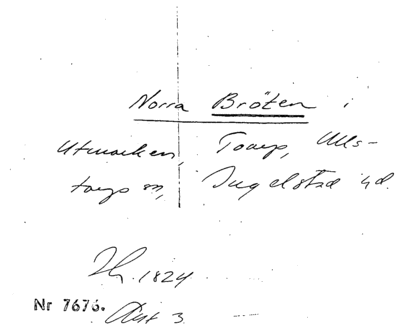 Norra Bröten i
Utmarken, Torup, Ulls-
torps sn, Ingelstad hd.
1824
Nr 7676. Akt 3